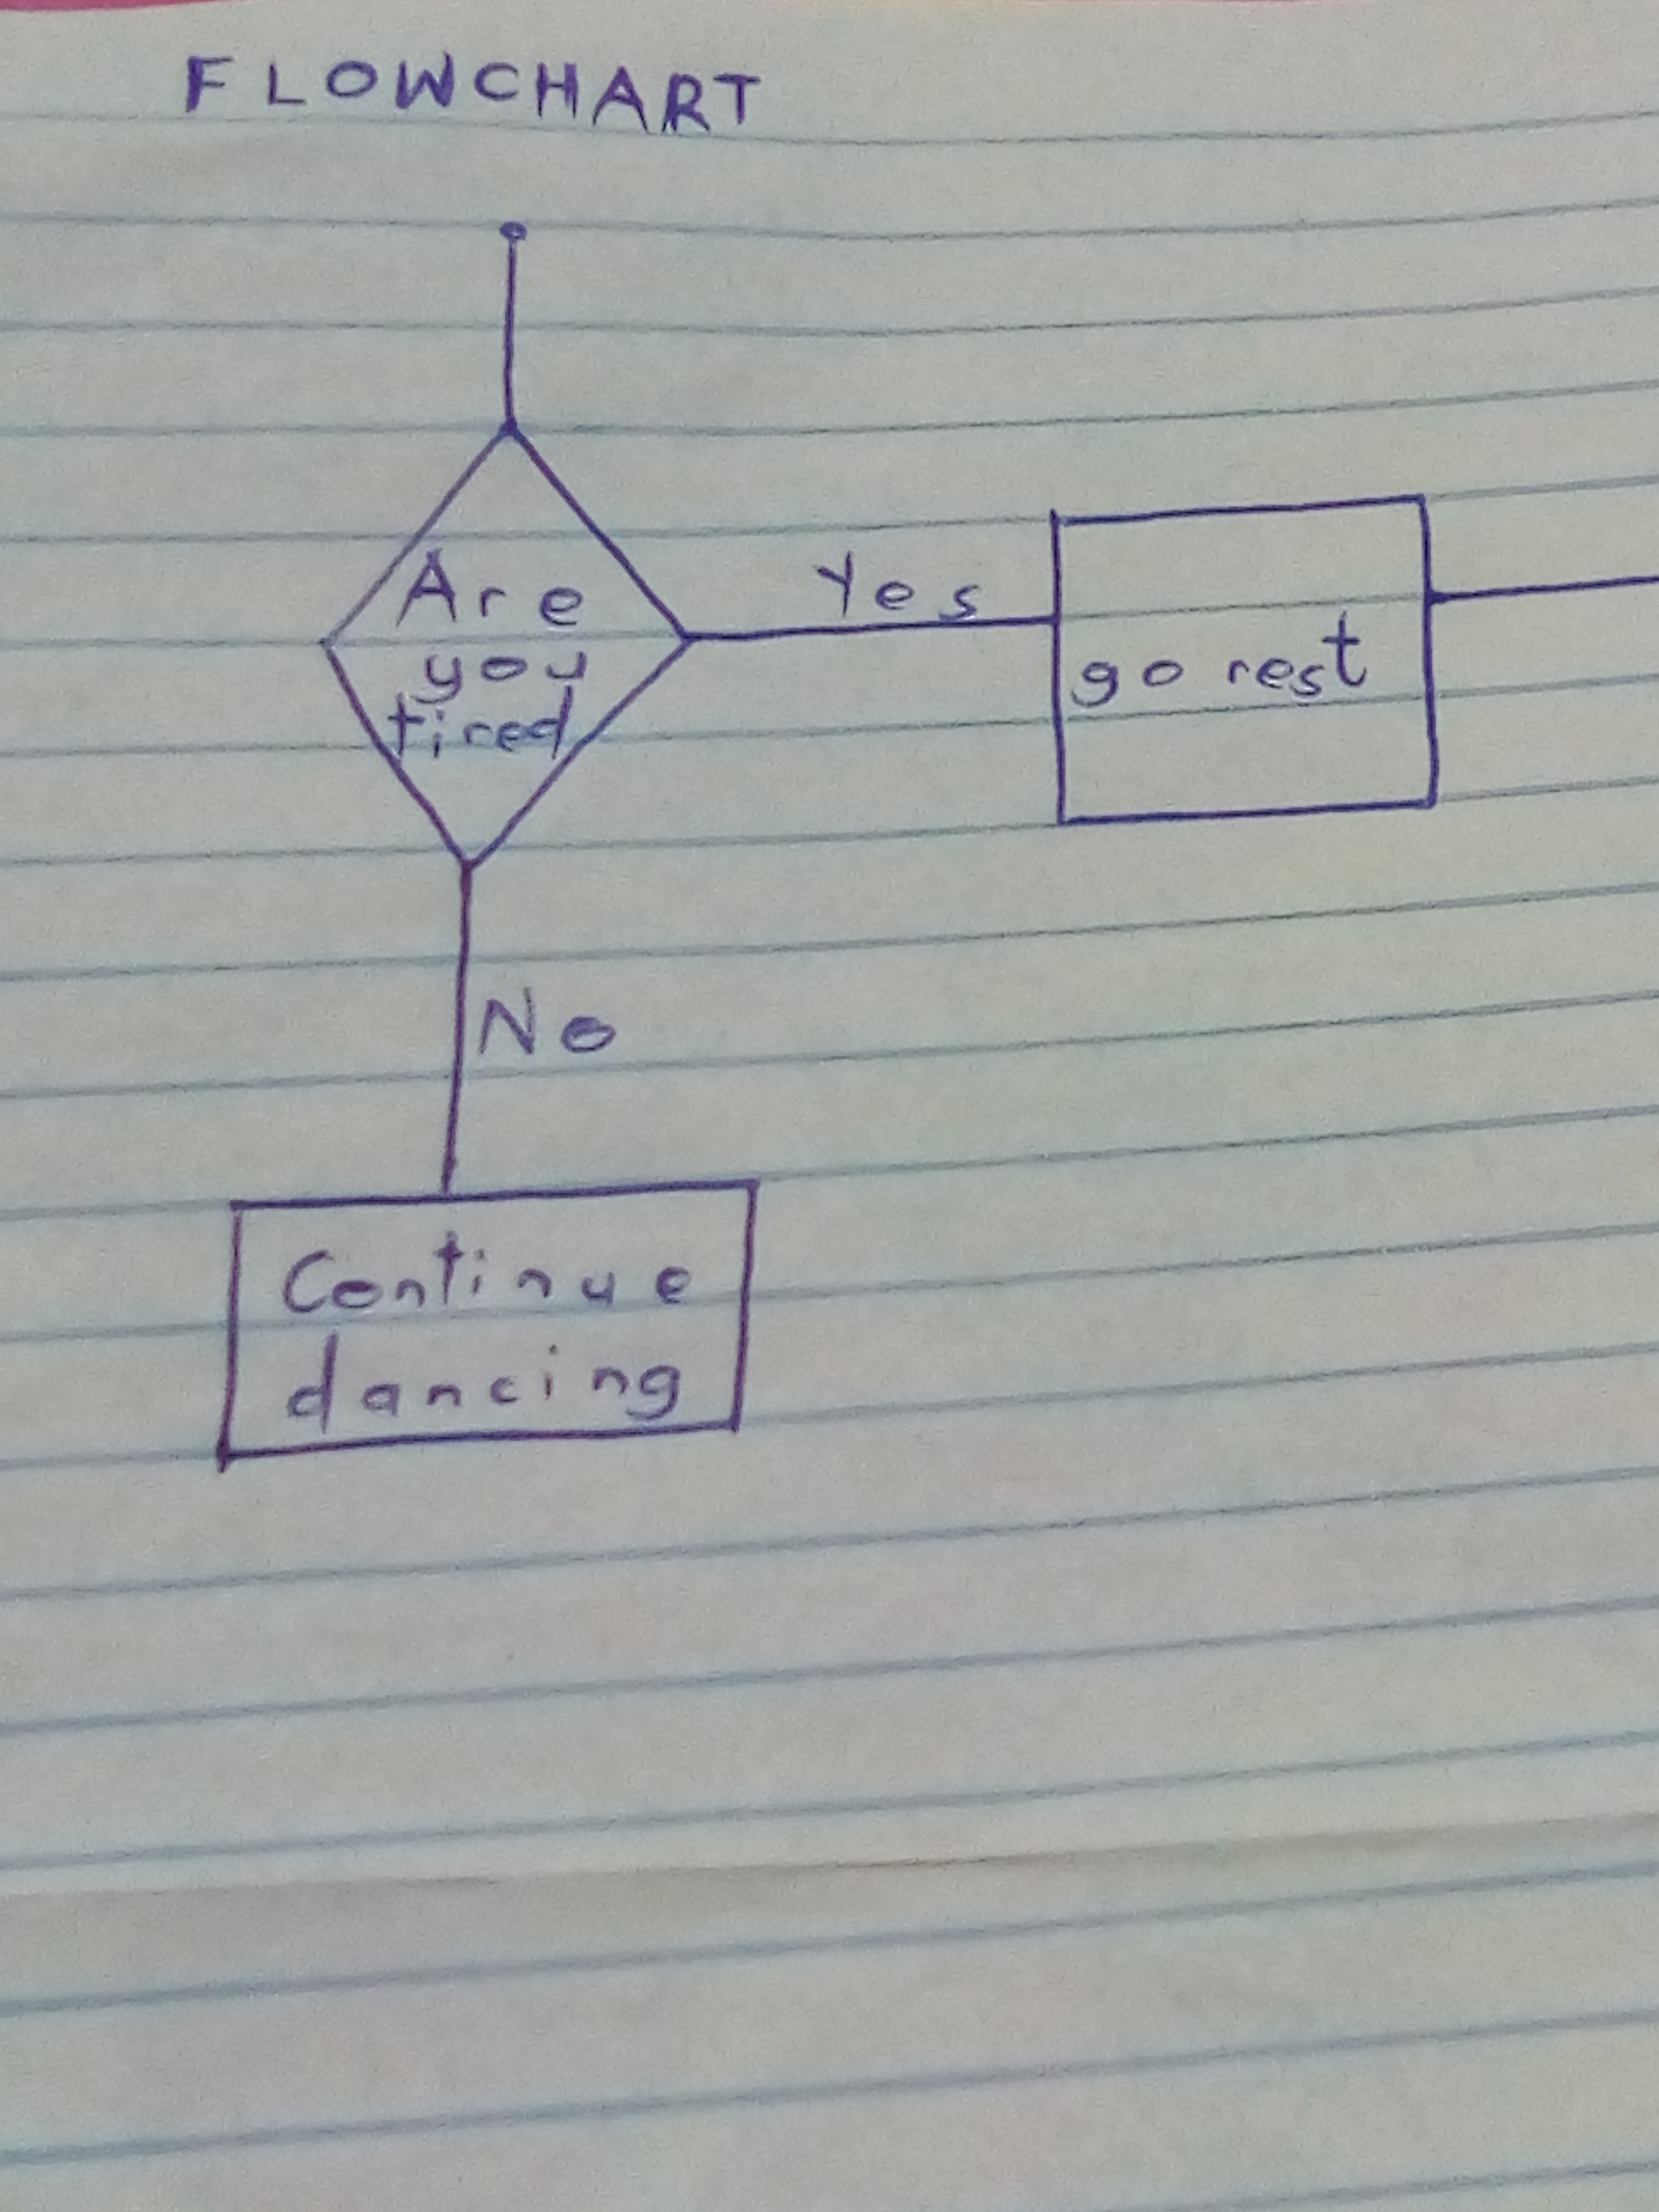 FLOWCHART
Are
you
tired
Yes
go rest
No
Continue
dancing